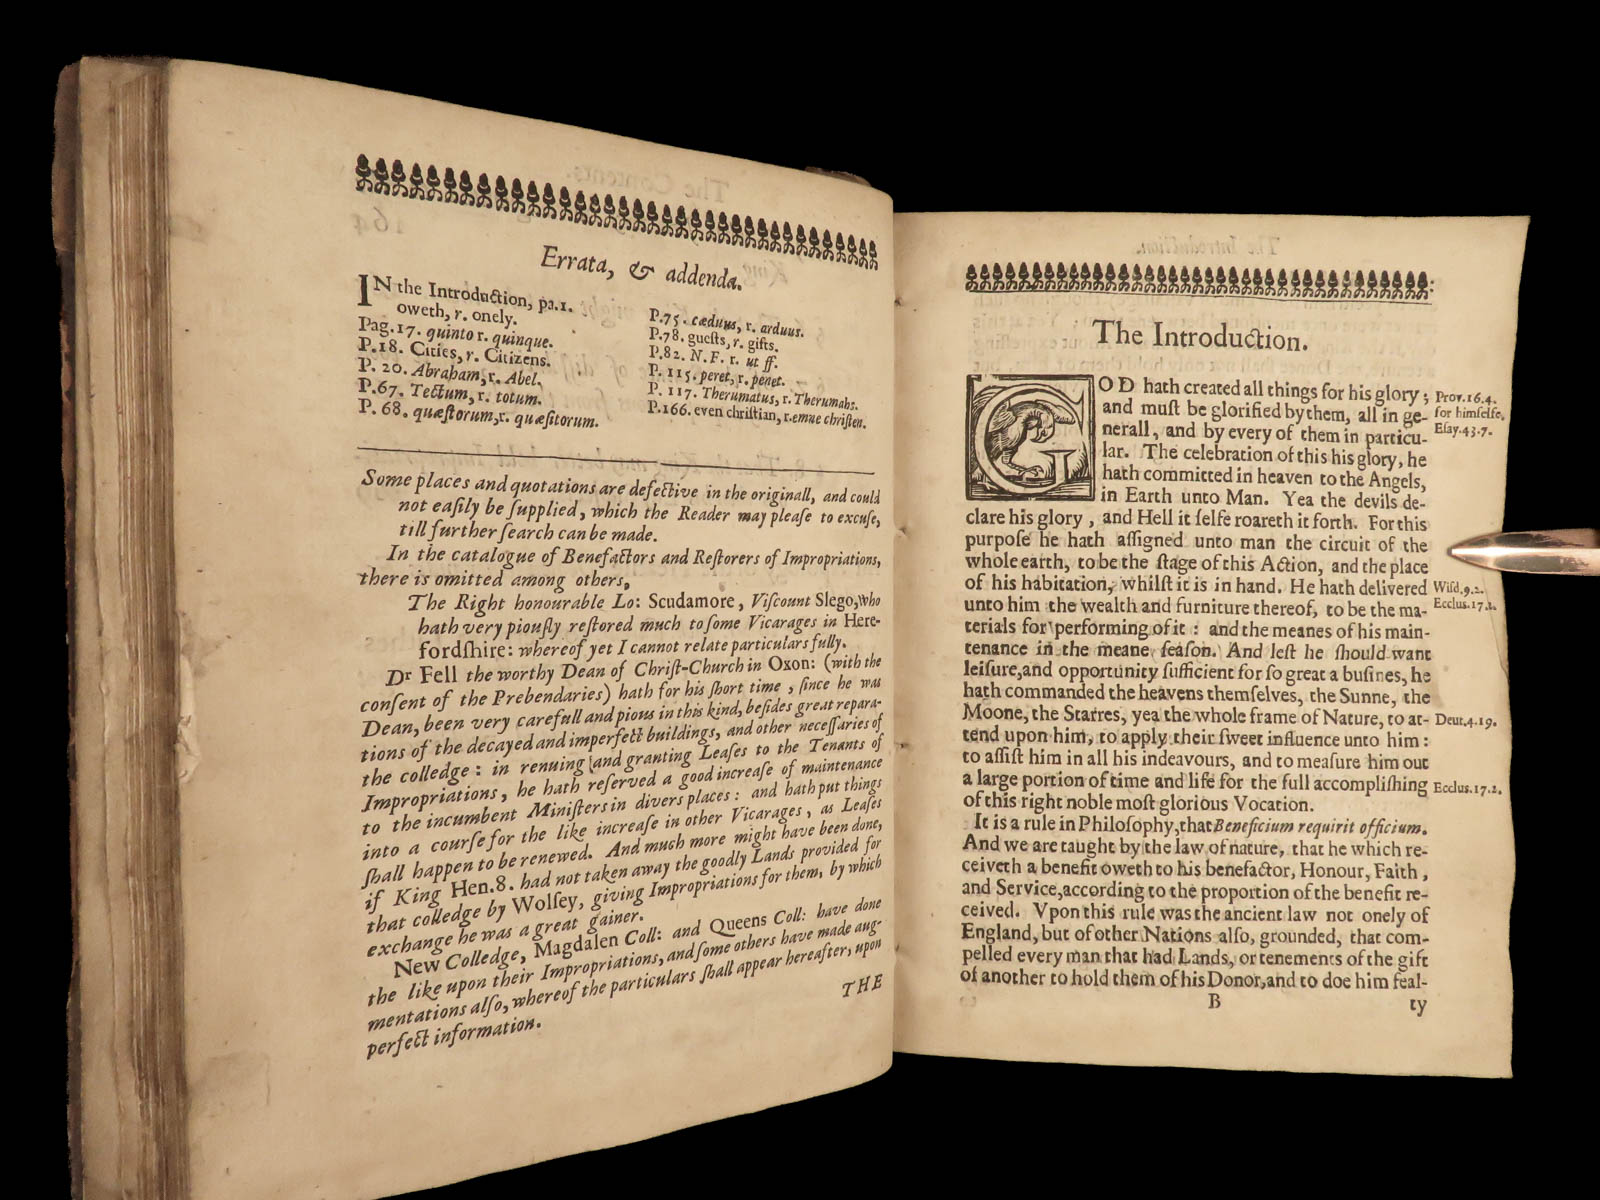 Errata, & addenda.
IN the Introduction, pa.1.
oweth, r. onely.
Pag.17. quinto r. quinque.
P.18. Cities, r. Citizens.
P. 20. Abraham, r. Abel.
P.67. Tectum, r. totum.
P. 68. quæſtorum, r. quæſitorum.
P.75. cæduus, r. arduus.
P.78. gueſts, r. gifts.
P.82. N. F. r. ut ff.
P. 115. peret, r. penet.
P. 117. Therumatus, r. Therumahs.
P.166. even chriſtian, r. emue chriſten.
Some places and quotations are defective in the originall, and could
not eaſily be ſupplied, which the Reader may pleaſe to excuſe,
till further ſearch can be made.
In the catalogue of Benefactors and Reſtorers of Impropriations,
there is omitted among others,
The Right honourable Lo: Scudamore, Viſcount Slego, who
hath very piouſly reſtored much to ſome Vicarages in Here-
fordſhire: whereof yet I cannot relate particulars fully.
Dr Fell the worthy Dean of Chriſt-Church in Oxon: (with the
conſent of the Prebendaries) hath for his ſhort time, ſince he was
Dean, been very carefull and pious in this kind, beſides great repara-
tions of the decayed and imperfect buildings, and other neceſſaries of
the colledge: in renuing and granting Leaſes to the Tenants of
Impropriations, he hath reſerved a good increaſe of maintenance
to the incumbent Miniſters in divers places: and hath put things
into a courſe for the like increaſe in other Vicarages, as Leaſes
ſhall happen to be renewed. And much more might have been done,
if King Hen.8. had not taken away the goodly Lands provided for
that colledge by Wolſey, giving Impropriations for them, by which
exchange he was a great gainer.
New Colledge, Magdalen Coll: and Queens Coll: have done
the like upon their Impropriations, and ſome others have made aug-
mentations alſo, whereof the particulars ſhall appear hereafter, upon
perfect information.
THE
The Introduction.
GOD hath created all things for his glory;
and muſt be glorified by them, all in ge-
nerall, and by every of them in particu-
lar. The celebration of this his glory, he
hath committed in heaven to the Angels,
in Earth unto Man. Yea the devils de-
clare his glory, and Hell it ſelfe roareth it forth. For this
purpoſe he hath aſſigned unto man the circuit of the
whole earth, to be the ſtage of this Action, and the place
of his habitation, whilſt it is in hand. He hath delivered
unto him the wealth and furniture thereof, to be the ma-
terials for performing of it: and the meanes of his main-
tenance in the meane ſeaſon. And leſt he ſhould want
leiſure, and opportunity ſufficient for ſo great a buſines, he
hath commanded the heavens themſelves, the Sunne, the
Moone, the Starres, yea the whole frame of Nature, to at-
tend upon him, to apply their ſweet influence unto him:
to aſſiſt him in all his indeavours, and to meaſure him out
a large portion of time and life for the full accompliſhing
of this right noble moſt glorious Vocation.
It is a rule in Philoſophy, that Beneficium requirit officium.
And we are taught by the law of nature, that he which re-
ceiveth a benefit oweth to his benefactor, Honour, Faith,
and Service, according to the proportion of the benefit re-
ceived. Vpon this rule was the ancient law not onely of
England, but of other Nations alſo, grounded, that com-
pelled every man that had Lands, or tenements of the gift
of another to hold them of his Donor, and to doe him feal-
B
ty
Prov.16.4.
for himſelfe.
Eſay.43.7.
Wiſd.9.2.
Ecclus.17.1.
Deut.4.19.
Ecclus.17.2.